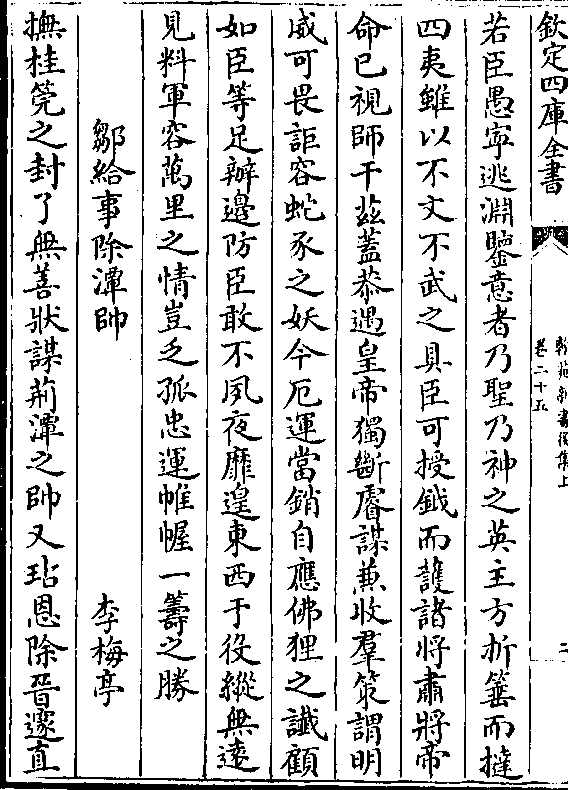 欽定四庫全書
翰苑新書後集上
卷二十五
若臣愚寧逃淵鑒意者乃聖乃神之英主方折箠而撻
四夷雖以不文不武之具臣可授鉞而護諸將肅將帝
命已視師干茲蓋恭遇皇帝獨斷睿謀兼收羣策謂明
威可畏詎容蛇豕之妖今厄運當銷自應佛狸之讖顧
如臣等足辦邊防臣敢不夙夜靡遑東西于役縱無遠
見料軍容萬里之情豈乏孤忠運帷幄一籌之勝
鄒給事除潭帥
李梅亭
撫桂筦之封了無善狀謀荊潭之帥又玷恩除晉邃直